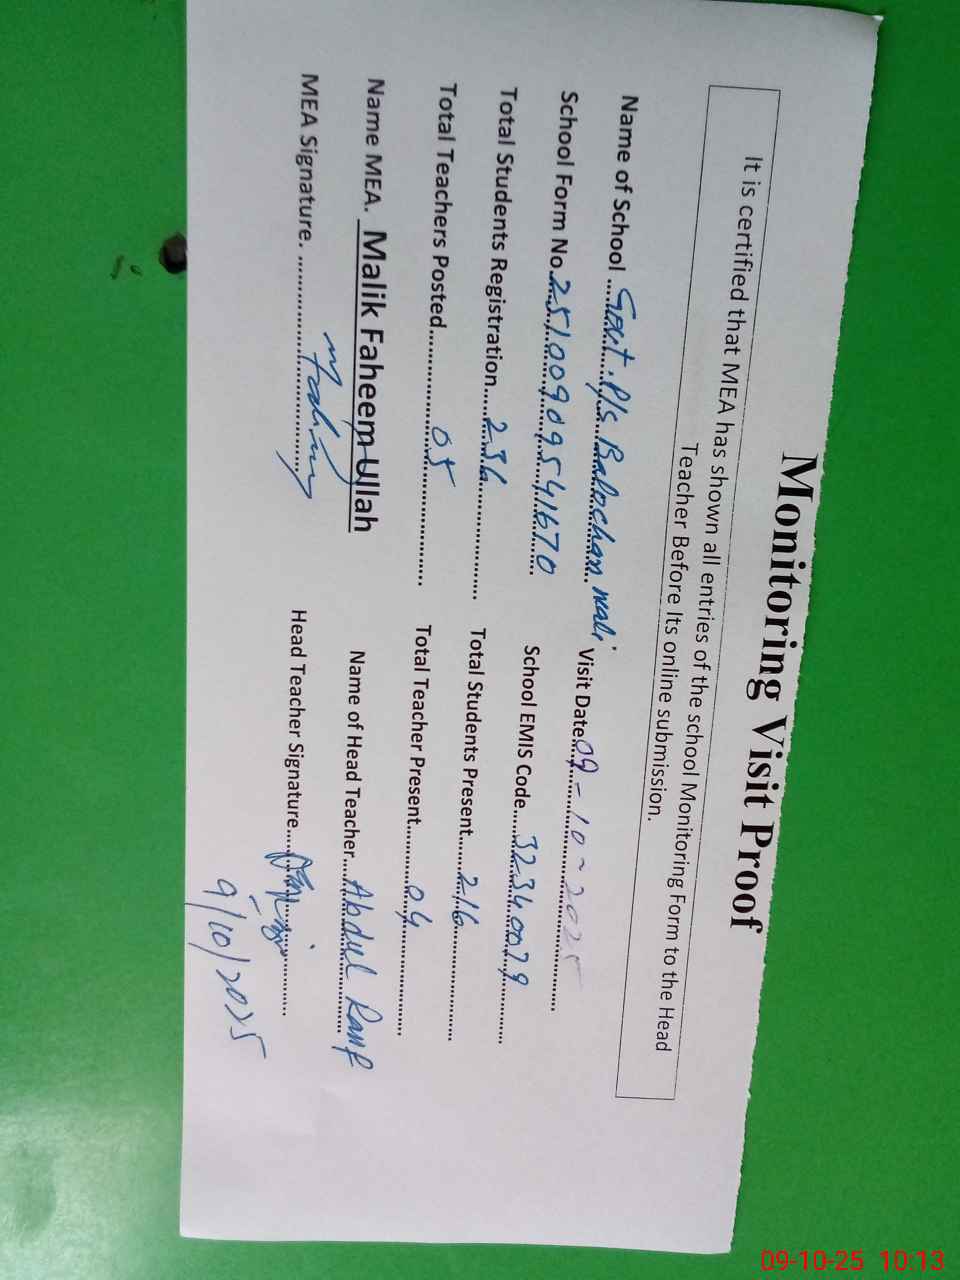 Monitoring Visit Proof
It is certified that MEA has shown all entries of the school Monitoring Form to the Head
Teacher Before Its online submission.
Name of School ....Govt. P/s Balochan wali Visit Date 09-10-2025
School Form No 251009095541670 School EMIS Code.... 32340079
Total Students Registration.... 236 Total Students Present.... 216
Total Teachers Posted.... 05 Total Teacher Present.... 04
Name MEA. Malik Faheem Ullah Name of Head Teacher... Abdul Rauf
MEA Signature. .... Head Teacher Signature....
9/10/2025
09-10-25 10:13